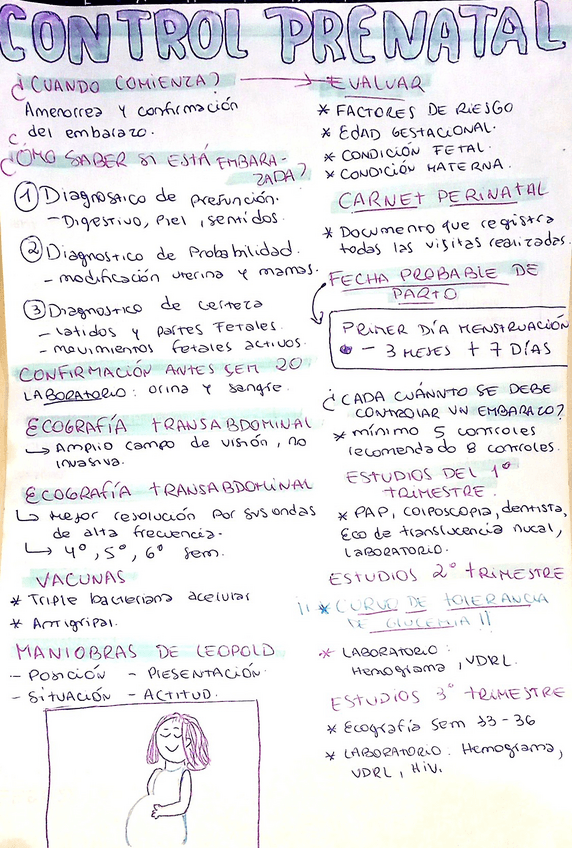 CONTROL PRENATAL
¿CUANDO COMIENZA?
Amenorrea y confirmación
del embarazo.
¿CÓMO SABER SI ESTÁ EMBARA-
ZADA?
1 Diagnostico de presunción.
- Digestivo, Piel, sentidos.
2 Diagnostico de Probabilidad.
- modificación uterina y mamas.
3 Diagnostico de certeza
- Latidos y partes Fetales.
- movimientos fetales activos.
CONFIRMACIÓN ANTES SEM 20
LABORATORIO: orina y sangre.
ECOGRAFÍA TRANSABDOMINAL
→ Amplio campo de visión, no
invasiva.
ECOGRAFÍA TRANSABDOMINAL
↳ Mejor resolución por sus ondas
de alta frecuencia.
↳ 4º, 5º, 6º sem.
VACUNAS
* Triple bacteriana acelular
* Antigripal.
MANIOBRAS DE LEOPOLD
- POSICIÓN - PRESENTACIÓN.
- SITUACIÓN - ACTITUD.
→ EVALUAR
* FACTORES DE RIESGO
* EDAD GESTACIONAL.
* CONDICIÓN FETAL.
* CONDICIÓN MATERNA.
CARNET PERINATAL
* Documento que registra
todas las visitas realizadas.
FECHA PROBABLE DE
PARTO
PRIMER DÍA MENSTRUACIÓN
- 3 MESES + 7 DÍAS
¿CADA CUÁNNTO SE DEBE
CONTROLAR UN EMBARAZO?
* mínimo 5 controles
recomendado 8 controles.
ESTUDIOS DEL 1º
TRIMESTRE.
* PAP, COLPOSCOPIA, dentista,
Eco de translucencia nucal,
LABORATORIO.
ESTUDIOS 2º TRIMESTRE
¡¡ * CURVO DE TOLERANCIA
DE GLUCEMIA !!
* LABORATORIO:
Hemograma, VDRL.
ESTUDIOS 3º TRIMESTRE
* Ecografía sem 33-36
* LABORATORIO: Hemograma,
VDRL, HIV.